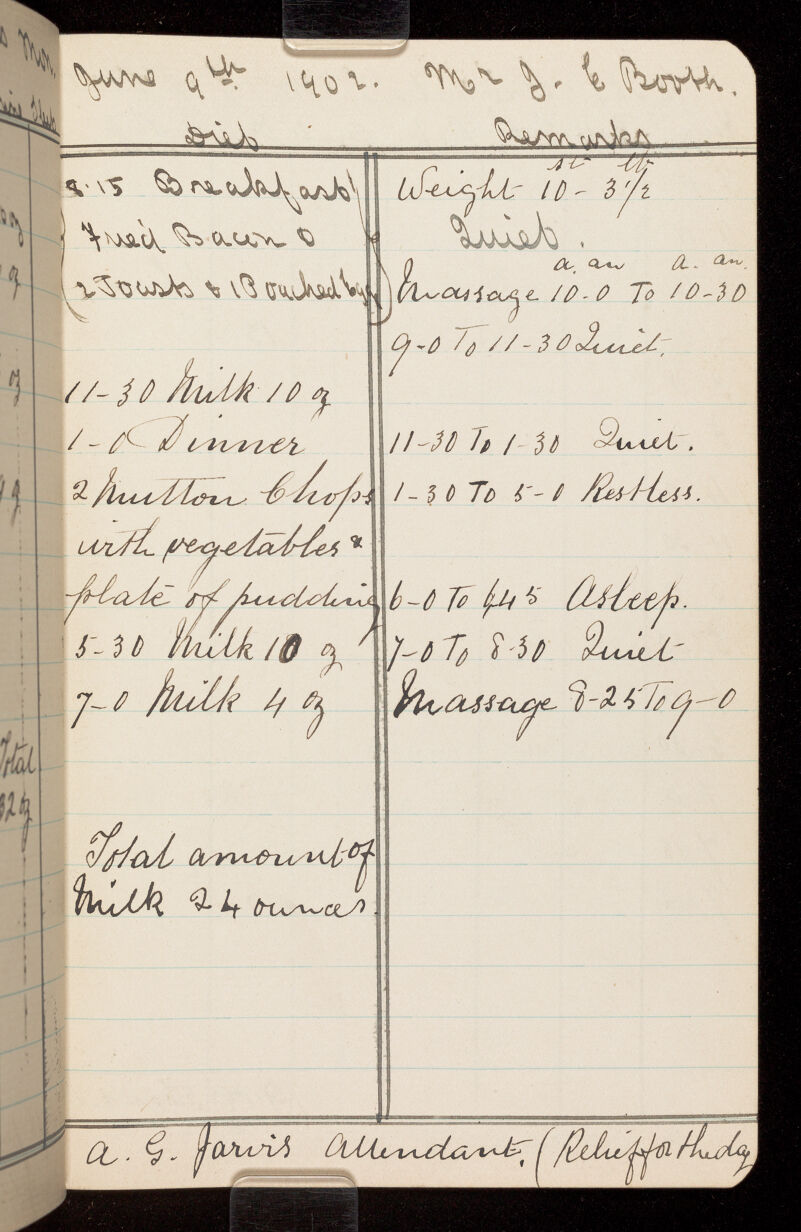 June 9th 1902. Mr J. E Booth.
Diet
Remarks
8.15 Breakfast
Fried Bacon
2 Toasts & 1 Poached Egg
11-30 Milk 10 oz
1-0 Dinner
2 Mutton Chops
with vegetables &
plate of pudding
5-30 Milk 10 oz
7-0 Milk 4 oz
Total amount of
Milk 24 ounces.
st lb
Weight 10 - 3 1/2
Quiet.
a.m a.m.
Massage 10.0 To 10-30
9-0 To 11-30 Quiet.
11-30 To 1-30 Quiet.
1-30 To 5-0 Restless.
6-0 To 6.45 Asleep.
7-0 To 8.30 Quiet
Massage 8-25 To 9-0
A. G. Jarvis Attendant. (Relief for the day
Mon.
oz
oz
Total
32 oz